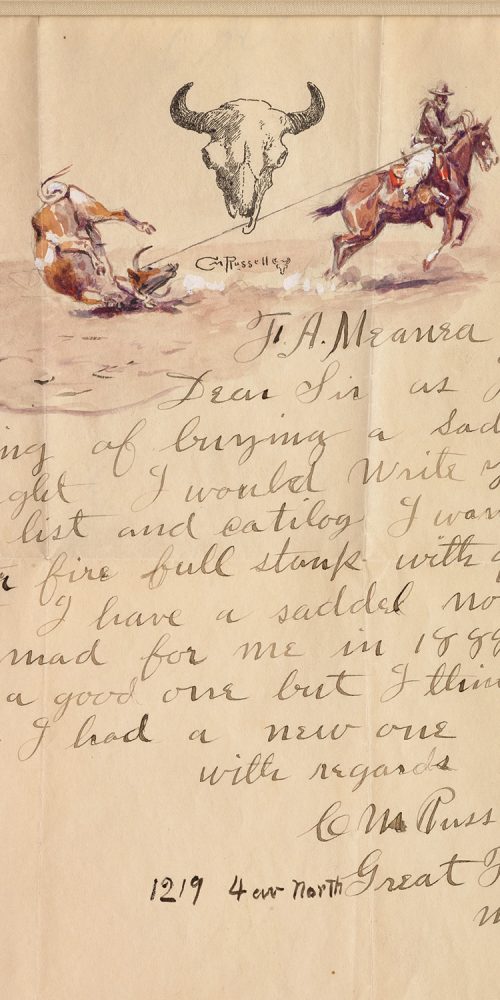 CM Russell
F. A. Meanea
Dear Sir as
ing of buying a sad
ght I would write y
list and catilog I wan
fire full stamp with
I have a saddel no
mad for me in 188
a good one but I thin
I had a new one
with regards
C M Russ
1219 4 av North Great F